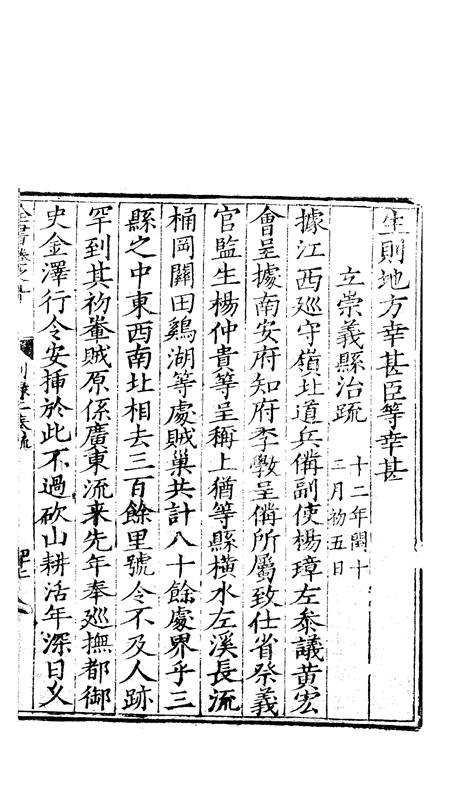 生則地方幸甚臣等幸甚
立崇義縣治疏 十二年閏十
二月初五日
據江西廵守嶺北道兵備副使楊璋左叅議黃宏
會呈據南安府知府李斆呈備所屬致仕省祭義
官監生楊仲貴等呈稱上猶等縣橫水左溪長流
桶岡關田鷄湖等處賊巢共計八十餘處界乎三
縣之中東西南北相去三百餘里號令不及人跡
罕到其初輋賊原係廣東流来先年奉廵撫都御
史金澤行令安揷於此不過砍山耕活年深日久